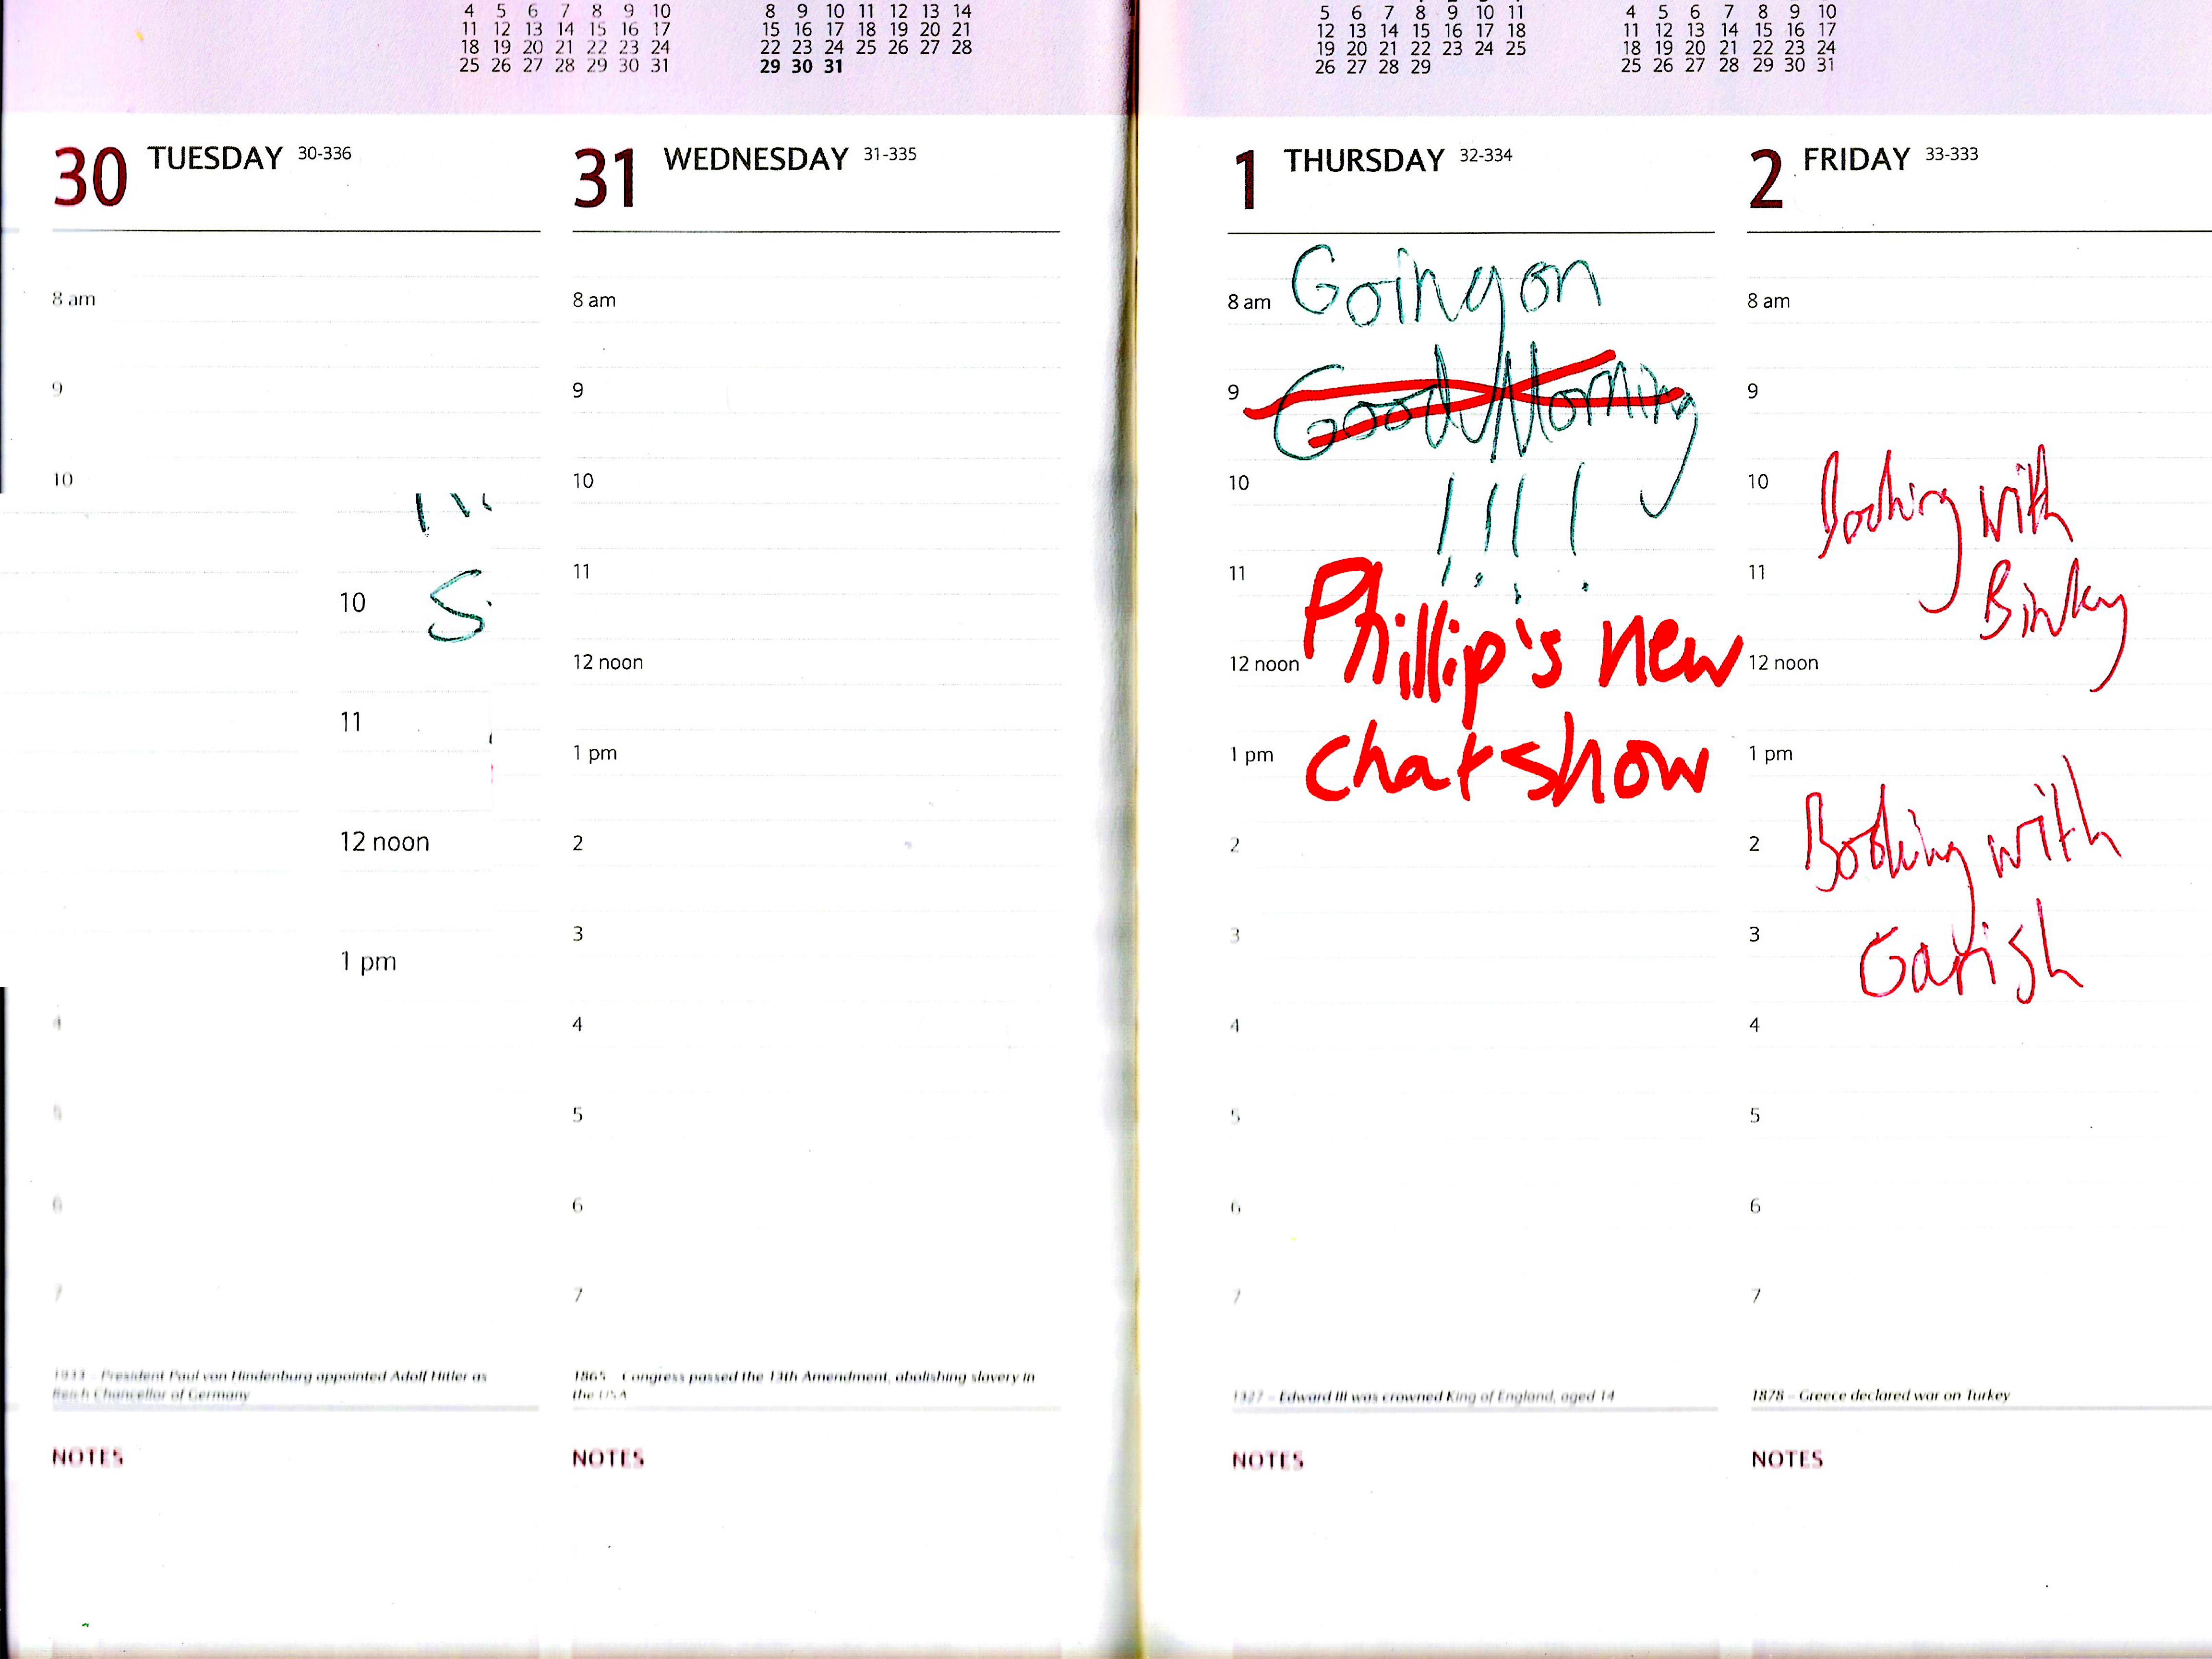 4 5 6 7 8 9 10
11 12 13 14 15 16 17
18 19 20 21 22 23 24
25 26 27 28 29 30 31
8 9 10 11 12 13 14
15 16 17 18 19 20 21
22 23 24 25 26 27 28
29 30 31
5 6 7 8 9 10 11
12 13 14 15 16 17 18
19 20 21 22 23 24 25
26 27 28 29
4 5 6 7 8 9 10
11 12 13 14 15 16 17
18 19 20 21 22 23 24
25 26 27 28 29 30 31
30 TUESDAY 30-336
8 am
9
10
10 S
11
12 noon
1 pm
4
5
6
7
1933 – President Paul von Hindenburg appointed Adolf Hitler as
Reich Chancellor of Germany
NOTES
31 WEDNESDAY 31-335
8 am
9
10
11
12 noon
1 pm
2
3
4
5
6
7
1865 – Congress passed the 13th Amendment, abolishing slavery in
the USA
NOTES
1 THURSDAY 32-334
8 am Going on
9 Good Morning
10 !!!!
11
12 noon Phillip's new
1 pm chat show
2
3
4
5
6
7
1327 – Edward III was crowned King of England, aged 14
NOTES
2 FRIDAY 33-333
8 am
9
10 Booking with
11 Binky
12 noon
1 pm
2 Booking with
3 Garish
4
5
6
7
1878 – Greece declared war on Turkey
NOTES